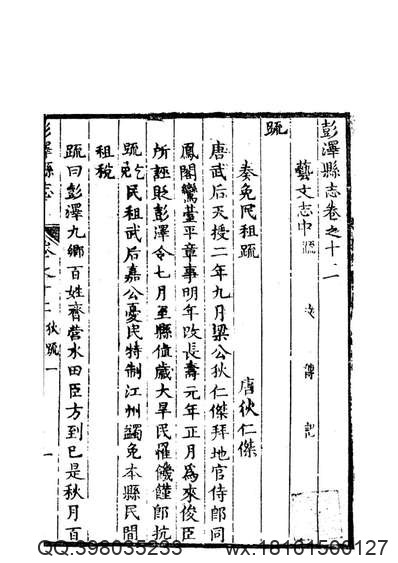 彭澤縣志卷之十二
藝文志中 疏 文 傳 記
疏
奏免民租疏 唐狄仁傑
唐武后天授二年九月梁公狄仁傑拜地官侍郎同
鳳閣鸞臺平章事明年改長壽元年正月為來俊臣
所誣貶彭澤令七月至縣值歲大旱民罹饑饉即抗
疏乞免民租武后嘉公憂民特制江州蠲免本縣民間
租稅
疏曰彭澤九鄉百姓齊營水田臣方到已是秋月百
彭澤縣志 卷之十二 狄疏 一
QQ:398035233 wx:18161500127